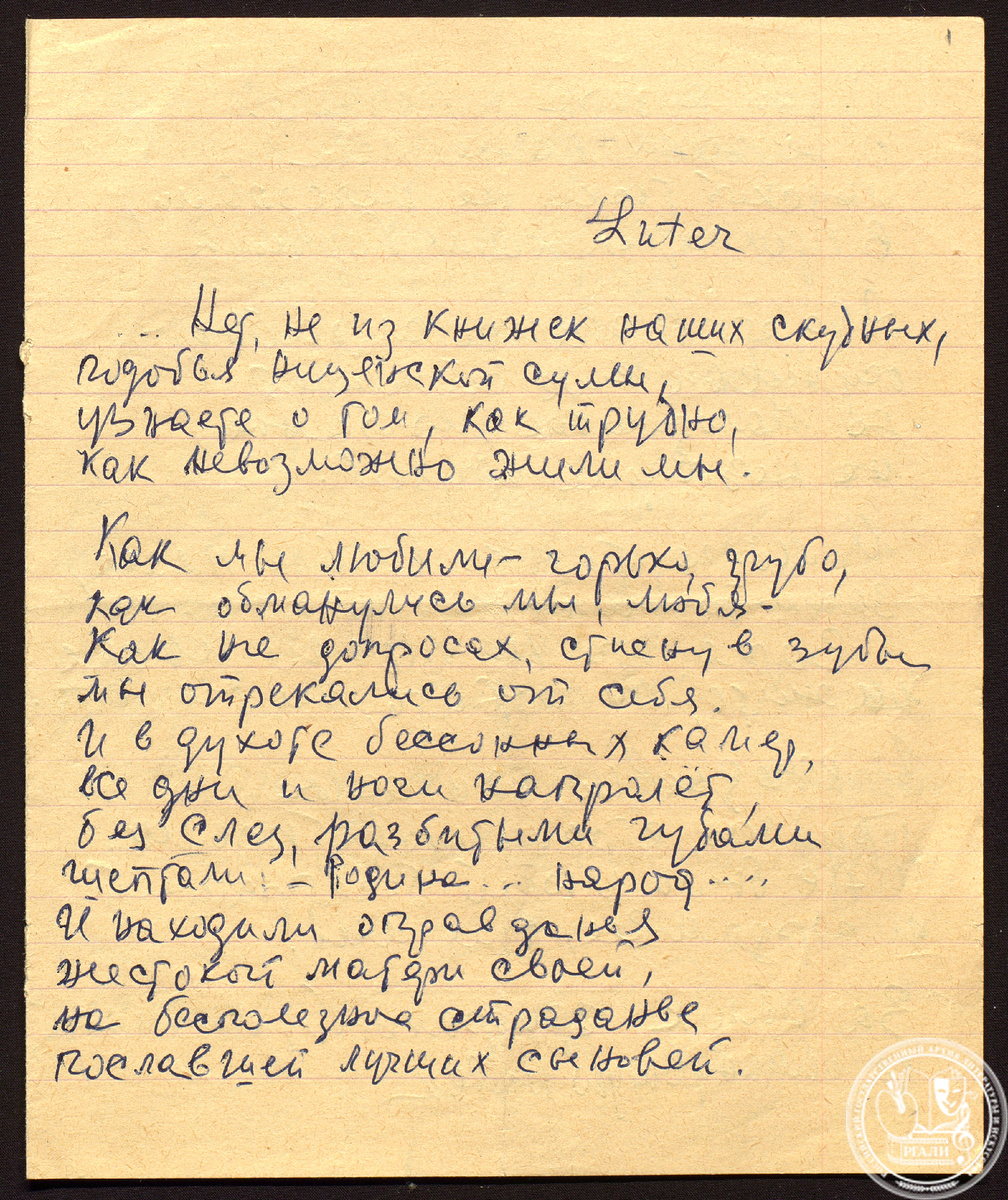 1
Luter
... Нет, не из книжек наших скудных,
подобья нищенской сумы,
узнаете о том, как трудно,
как невозможно жили мы.
Как мы любили – горько, грубо,
как обманулись мы, любя –
Как на допросах, стиснув зубы
мы отрекались от себя.
И в духоте бессонных камер,
все дни и ночи напролёт,
без слез, разбитыми губами
шептали: – Родина... народ....
И находили оправданья
жестокой матери своей,
на бесполезное страданье
пославшей лучших сыновей.
РГАЛИ